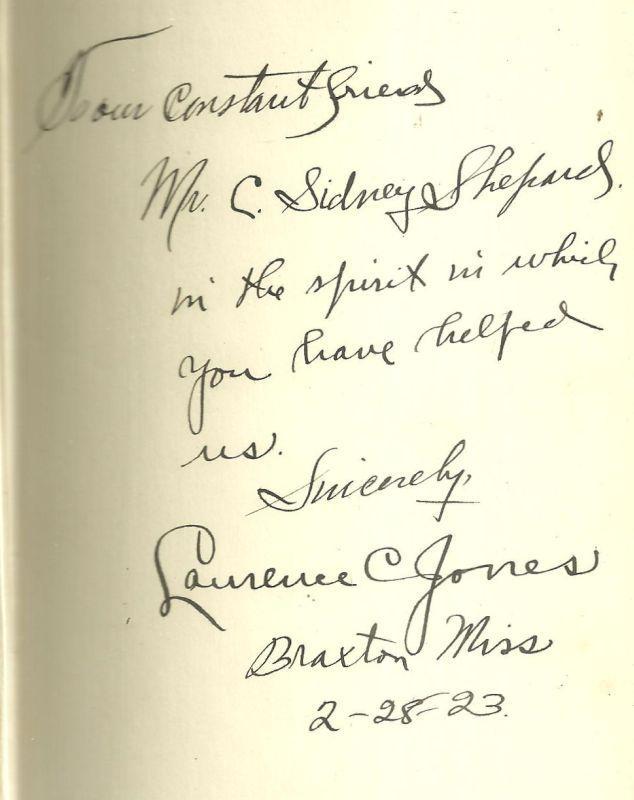 To our constant friend
Mr. C. Sidney Shepard.
in the spirit in which
you have helped
us.
Sincerely,
Laurence C Jones
Braxton Miss
2-28-23.